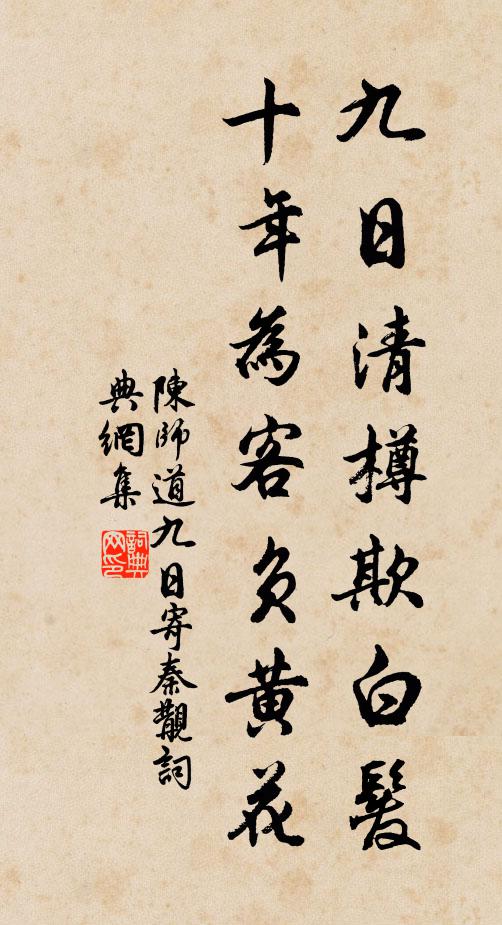 九日清樽欺白髮
十年為客負黃花
陳師道九日寄秦觀詞
典網集
詞典
网印